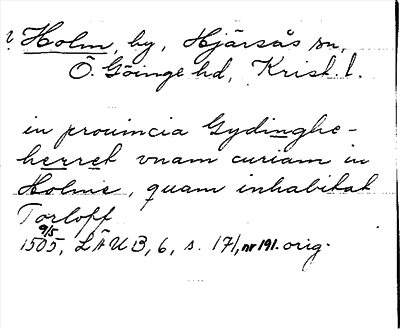 ? Holm, by, Hjärsås sn,
Ö. Göinge hd, Krist. l.
in prouincia Gydinghe-
herret vnam curiam in
Holme, quam inhabitat
Torloff
9/5
1505, LÄUB, 6, s. 171, nr 191. orig.